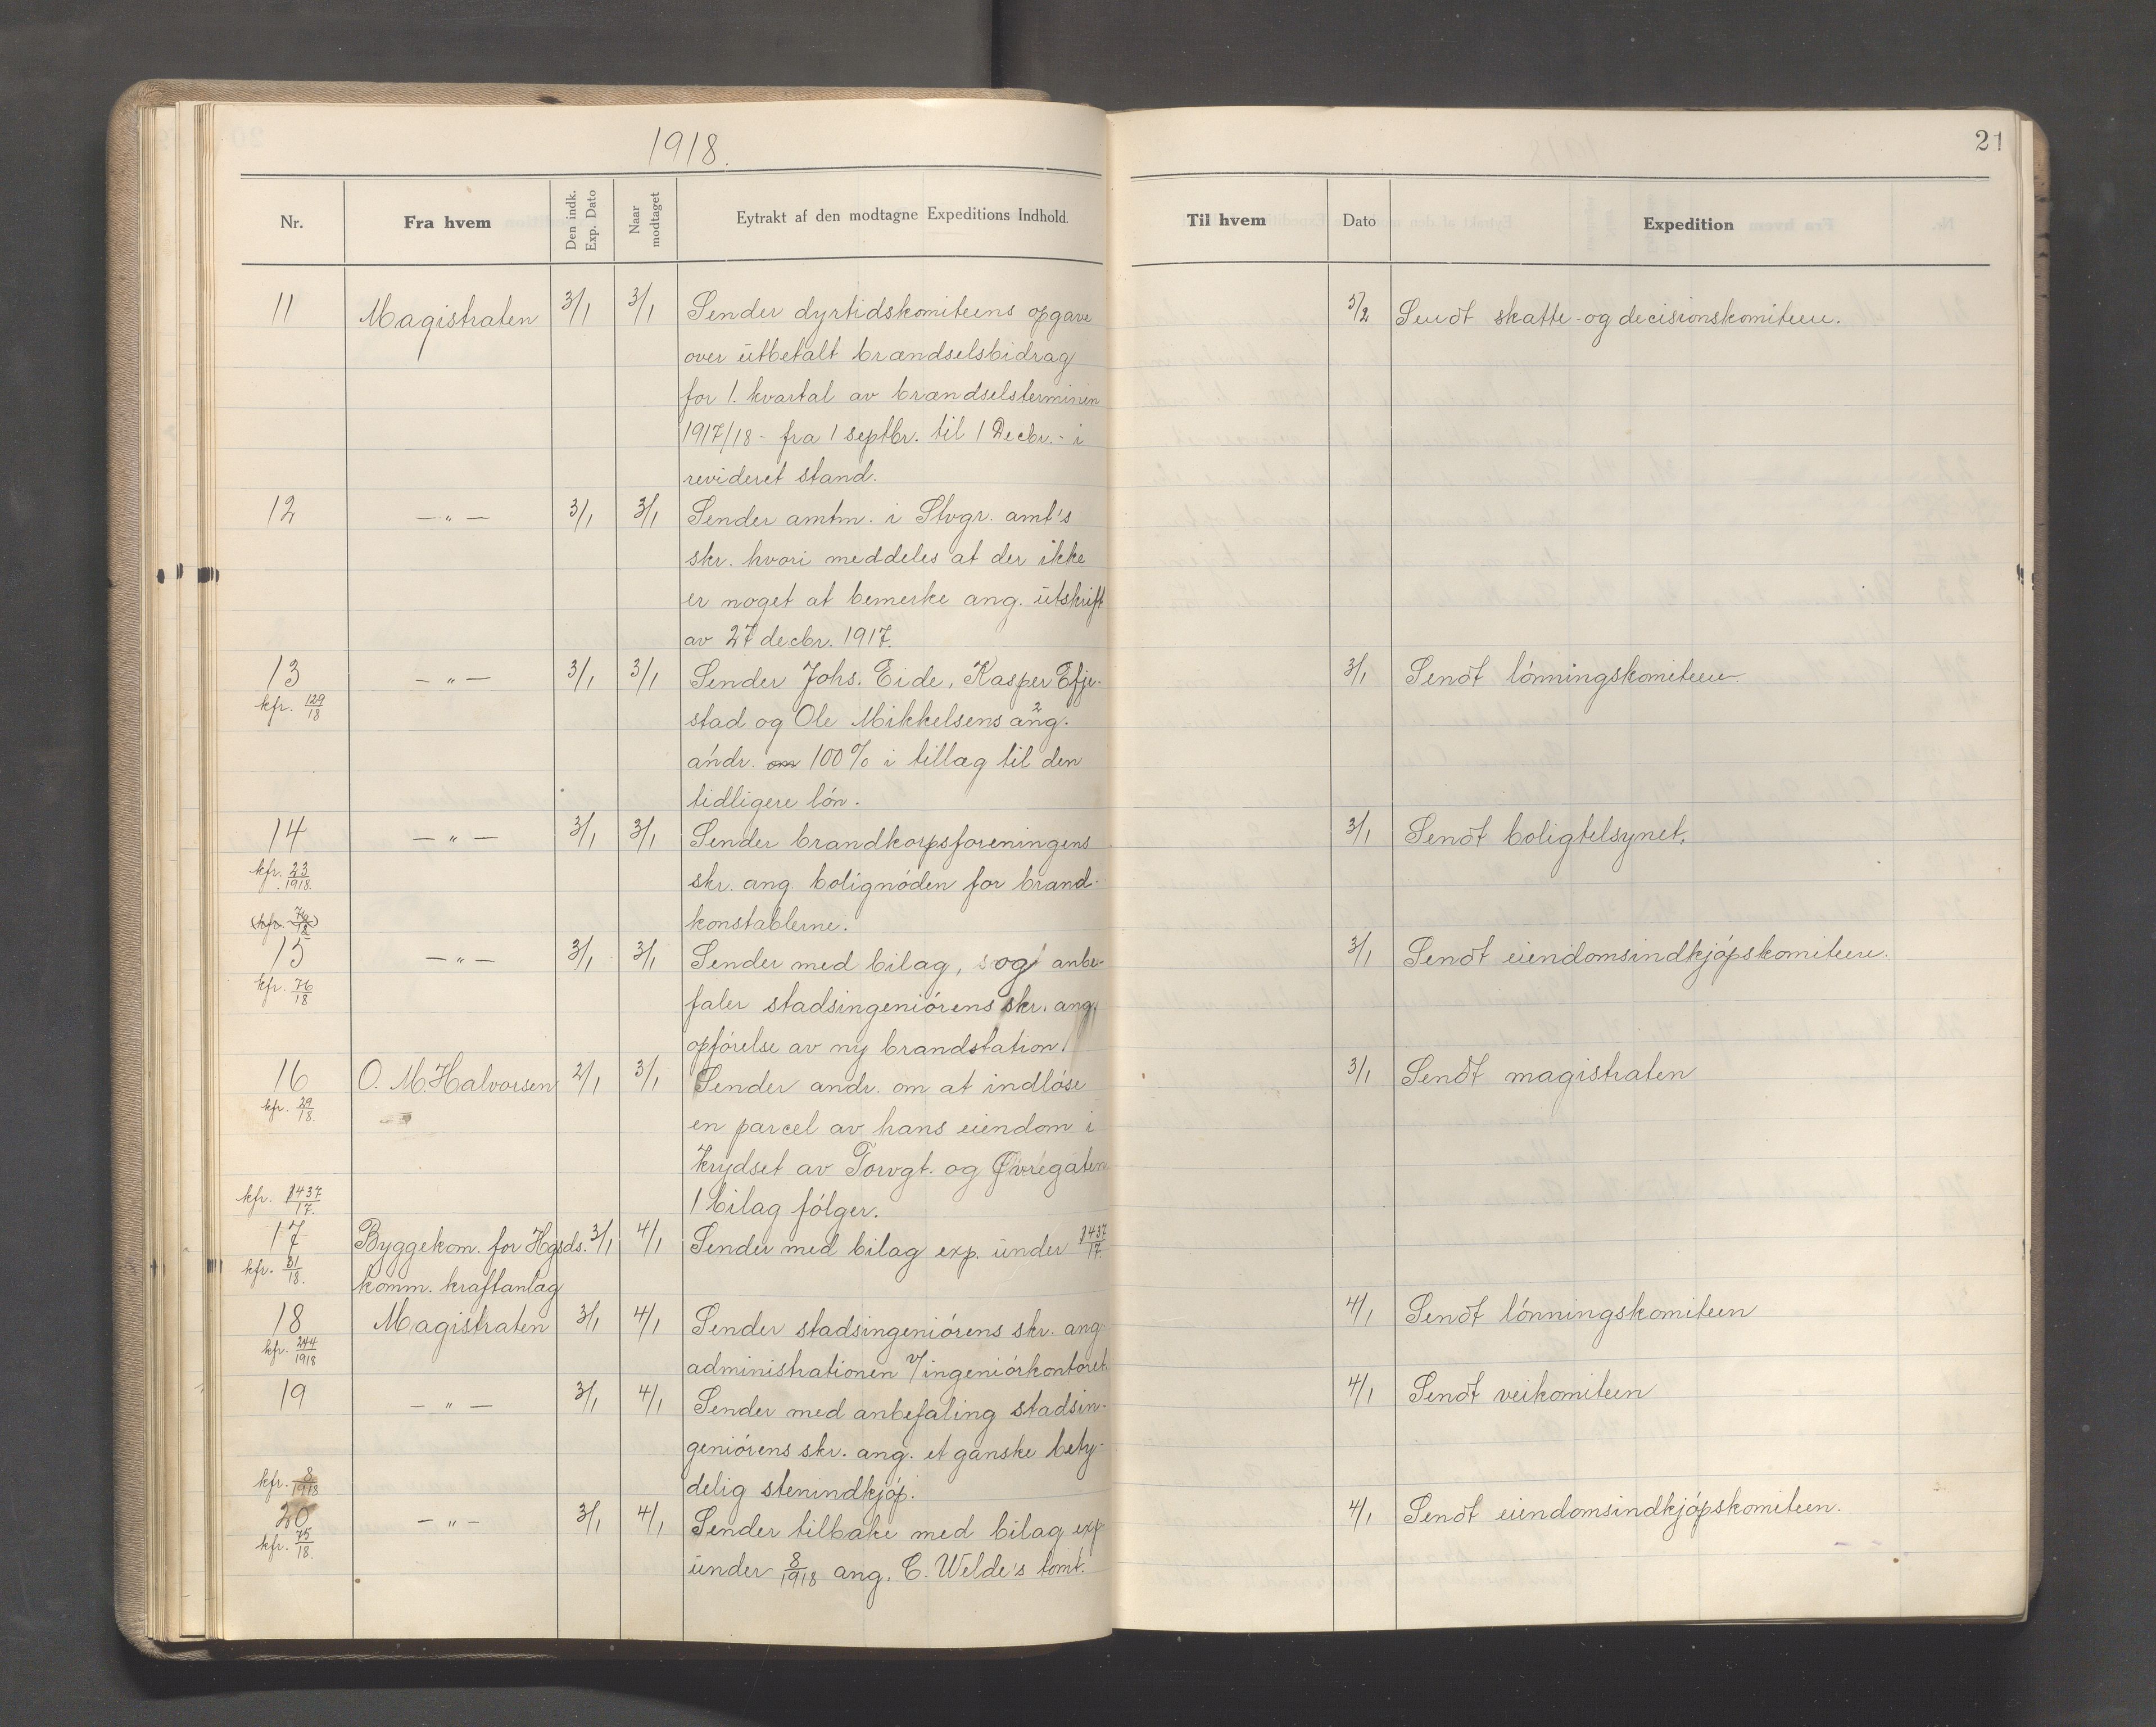 1918.
21
Nr.
Fra hvem
Den indk. Exp. Dato
Naar modtaget
Eytrakt af den modtagne Expeditions Indhold.
Til hvem
Dato
Expedition
11 Magistraten 3/1 3/1 Sender dyrtidskomiteens opgave 5/2 Sendt skatte- og decisionskomiteen.
over utbetalt brændselsbidrag
for 1. kvartal av brændselsterminen
1917/18 - fra 1 septbr. til 1 Decbr. - i
revideret stand.
12 — " — 3/1 3/1 Sender amtm. i Stvgr. amt's
skr. hvori meddeles at der ikke
er noget at bemerke ang. utskrift
av 27 decbr. 1917.
13 — " — 3/1 3/1 Sender Johs. Eide, Kasper Efje- 3/1 Sendt lónningskomiteen.
kfr. 129/18
stad og Ole Mikkelsens ang.
ándr. om 100% i tillæg til den
tidligere lón.
14 — " — 3/1 3/1 Sender brandkorpsforeningens 3/1 Sendt boligtelsynet.
kfr. 23/1918.
skr. ang. bolignóden for brand-
(kfr. 76/18)
konstablerne.
15 — " — 3/1 3/1 Sender med bilag, og anbe- 3/1 Sendt eiendomsindkjópskomiteen.
kfr. 76/18
faler stadsingeniórens skr. ang.
opfórelse av ny brandstation.
16 O. M. Halvorsen 2/1 3/1 Sender andr. om at indlóse 3/1 Sendt magistraten
kfr. 29/18.
en parcel av hans eiendom i
krydset av Torvgt. og Øvregaten.
kfr. 1437/17.
1 bilag fólger.
17 Byggekom. for Hgsds. 3/1 4/1 Sender med bilag exp. under 1437/17.
kfr. 31/18.
komm. kraftanlæg
18 Magistraten 3/1 4/1 Sender stadsingeniórens skr. ang. 4/1 Sendt lónningskomiteen
kfr. 244/1918
administrationen v/ingeniórkontoret.
19 — " — 3/1 4/1 Sender med anbefaling stadsin- 4/1 Sendt veikomiteen
geniórens skr. ang. et ganske bety-
kfr. 8/1918
delig stenindkjóp.
20 — " — 3/1 4/1 Sender tilbake med bilag exp. 4/1 Sendt eiendomsindkjópskomiteen.
kfr. 75/18.
under 8/1918 ang. C. Welde's tomt.